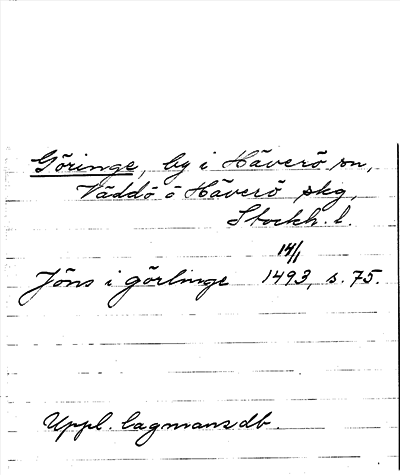 Göringe, by i Häverö sn,
Väddö o Häverö skg,
Stockh. l.
14/1
Jöns i görlinge 1493, s. 75.
Uppl. lagmansdb.